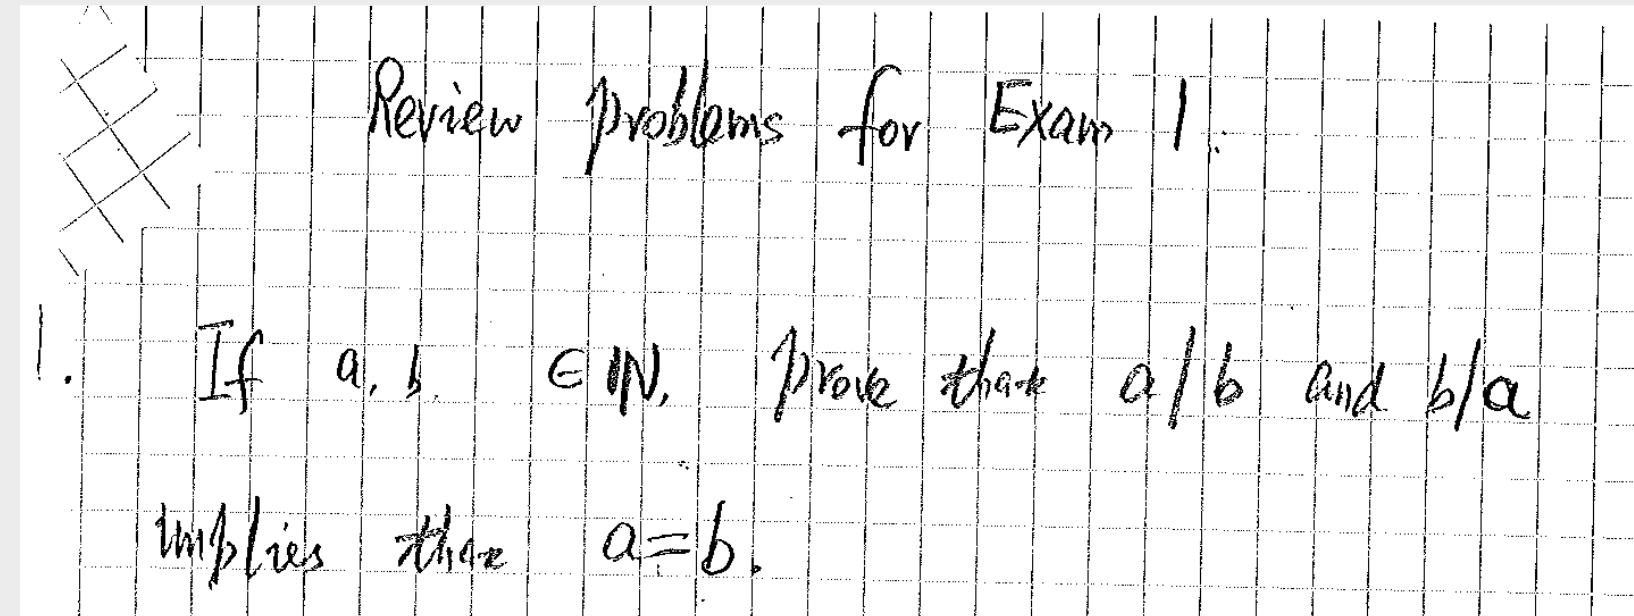 Review problems for Exam 1.
1. If a, b ∈ ℕ, prove that a|b and b|a
implies that a=b.